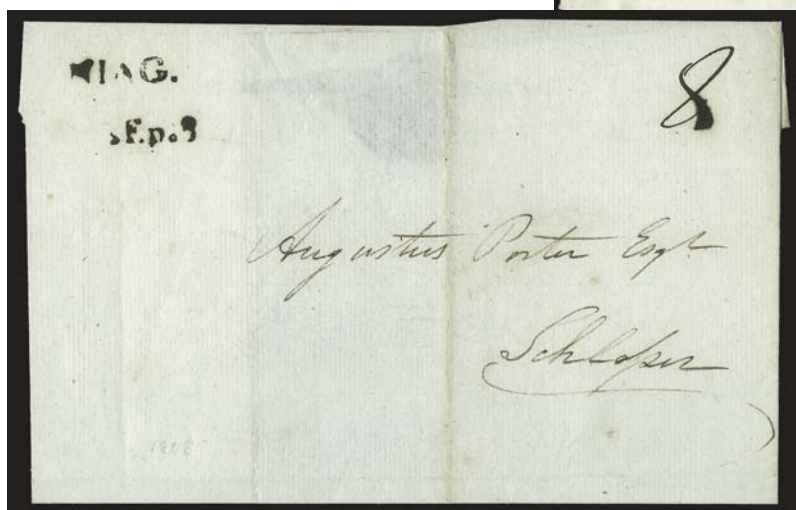 NIAG.
SEp. 3
8
Augustus Porter Esqr
Schlosser